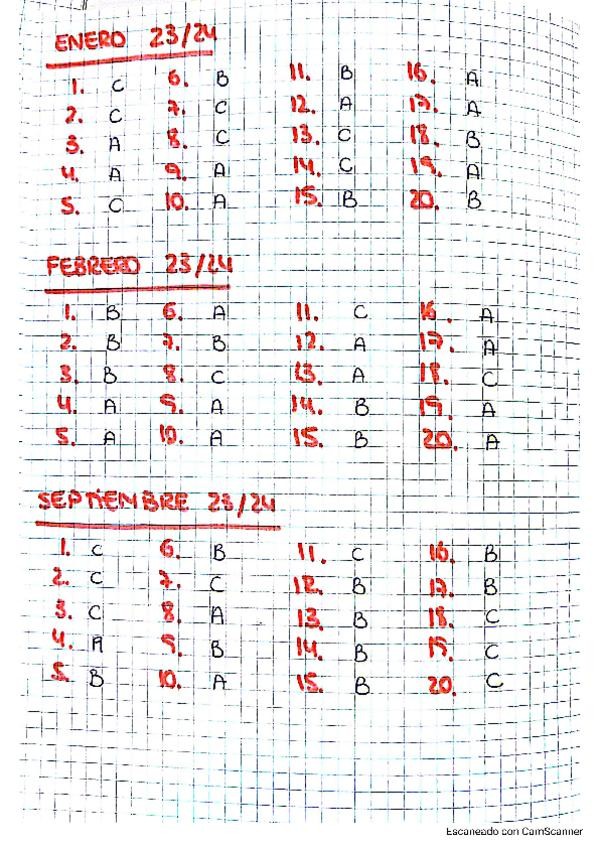 ENERO 23/24
1. C 6. B 11. B 16. A
2. C 7. C 12. A 17. A
3. A 8. C 13. C 18. B
4. A 9. A 14. C 19. A
5. C 10. A 15. B 20. B
FEBRERO 23/24
1. B 6. A 11. C 16. A
2. B 7. B 12. A 17. A
3. B 8. C 13. A 18. C
4. A 9. A 14. B 19. A
5. A 10. A 15. B 20. A
SEPTIEMBRE 23/24
1. C 6. B 11. C 16. B
2. C 7. C 12. B 17. B
3. C 8. A 13. B 18. C
4. A 9. B 14. B 19. C
5. B 10. A 15. B 20. C
Escaneado con CamScanner